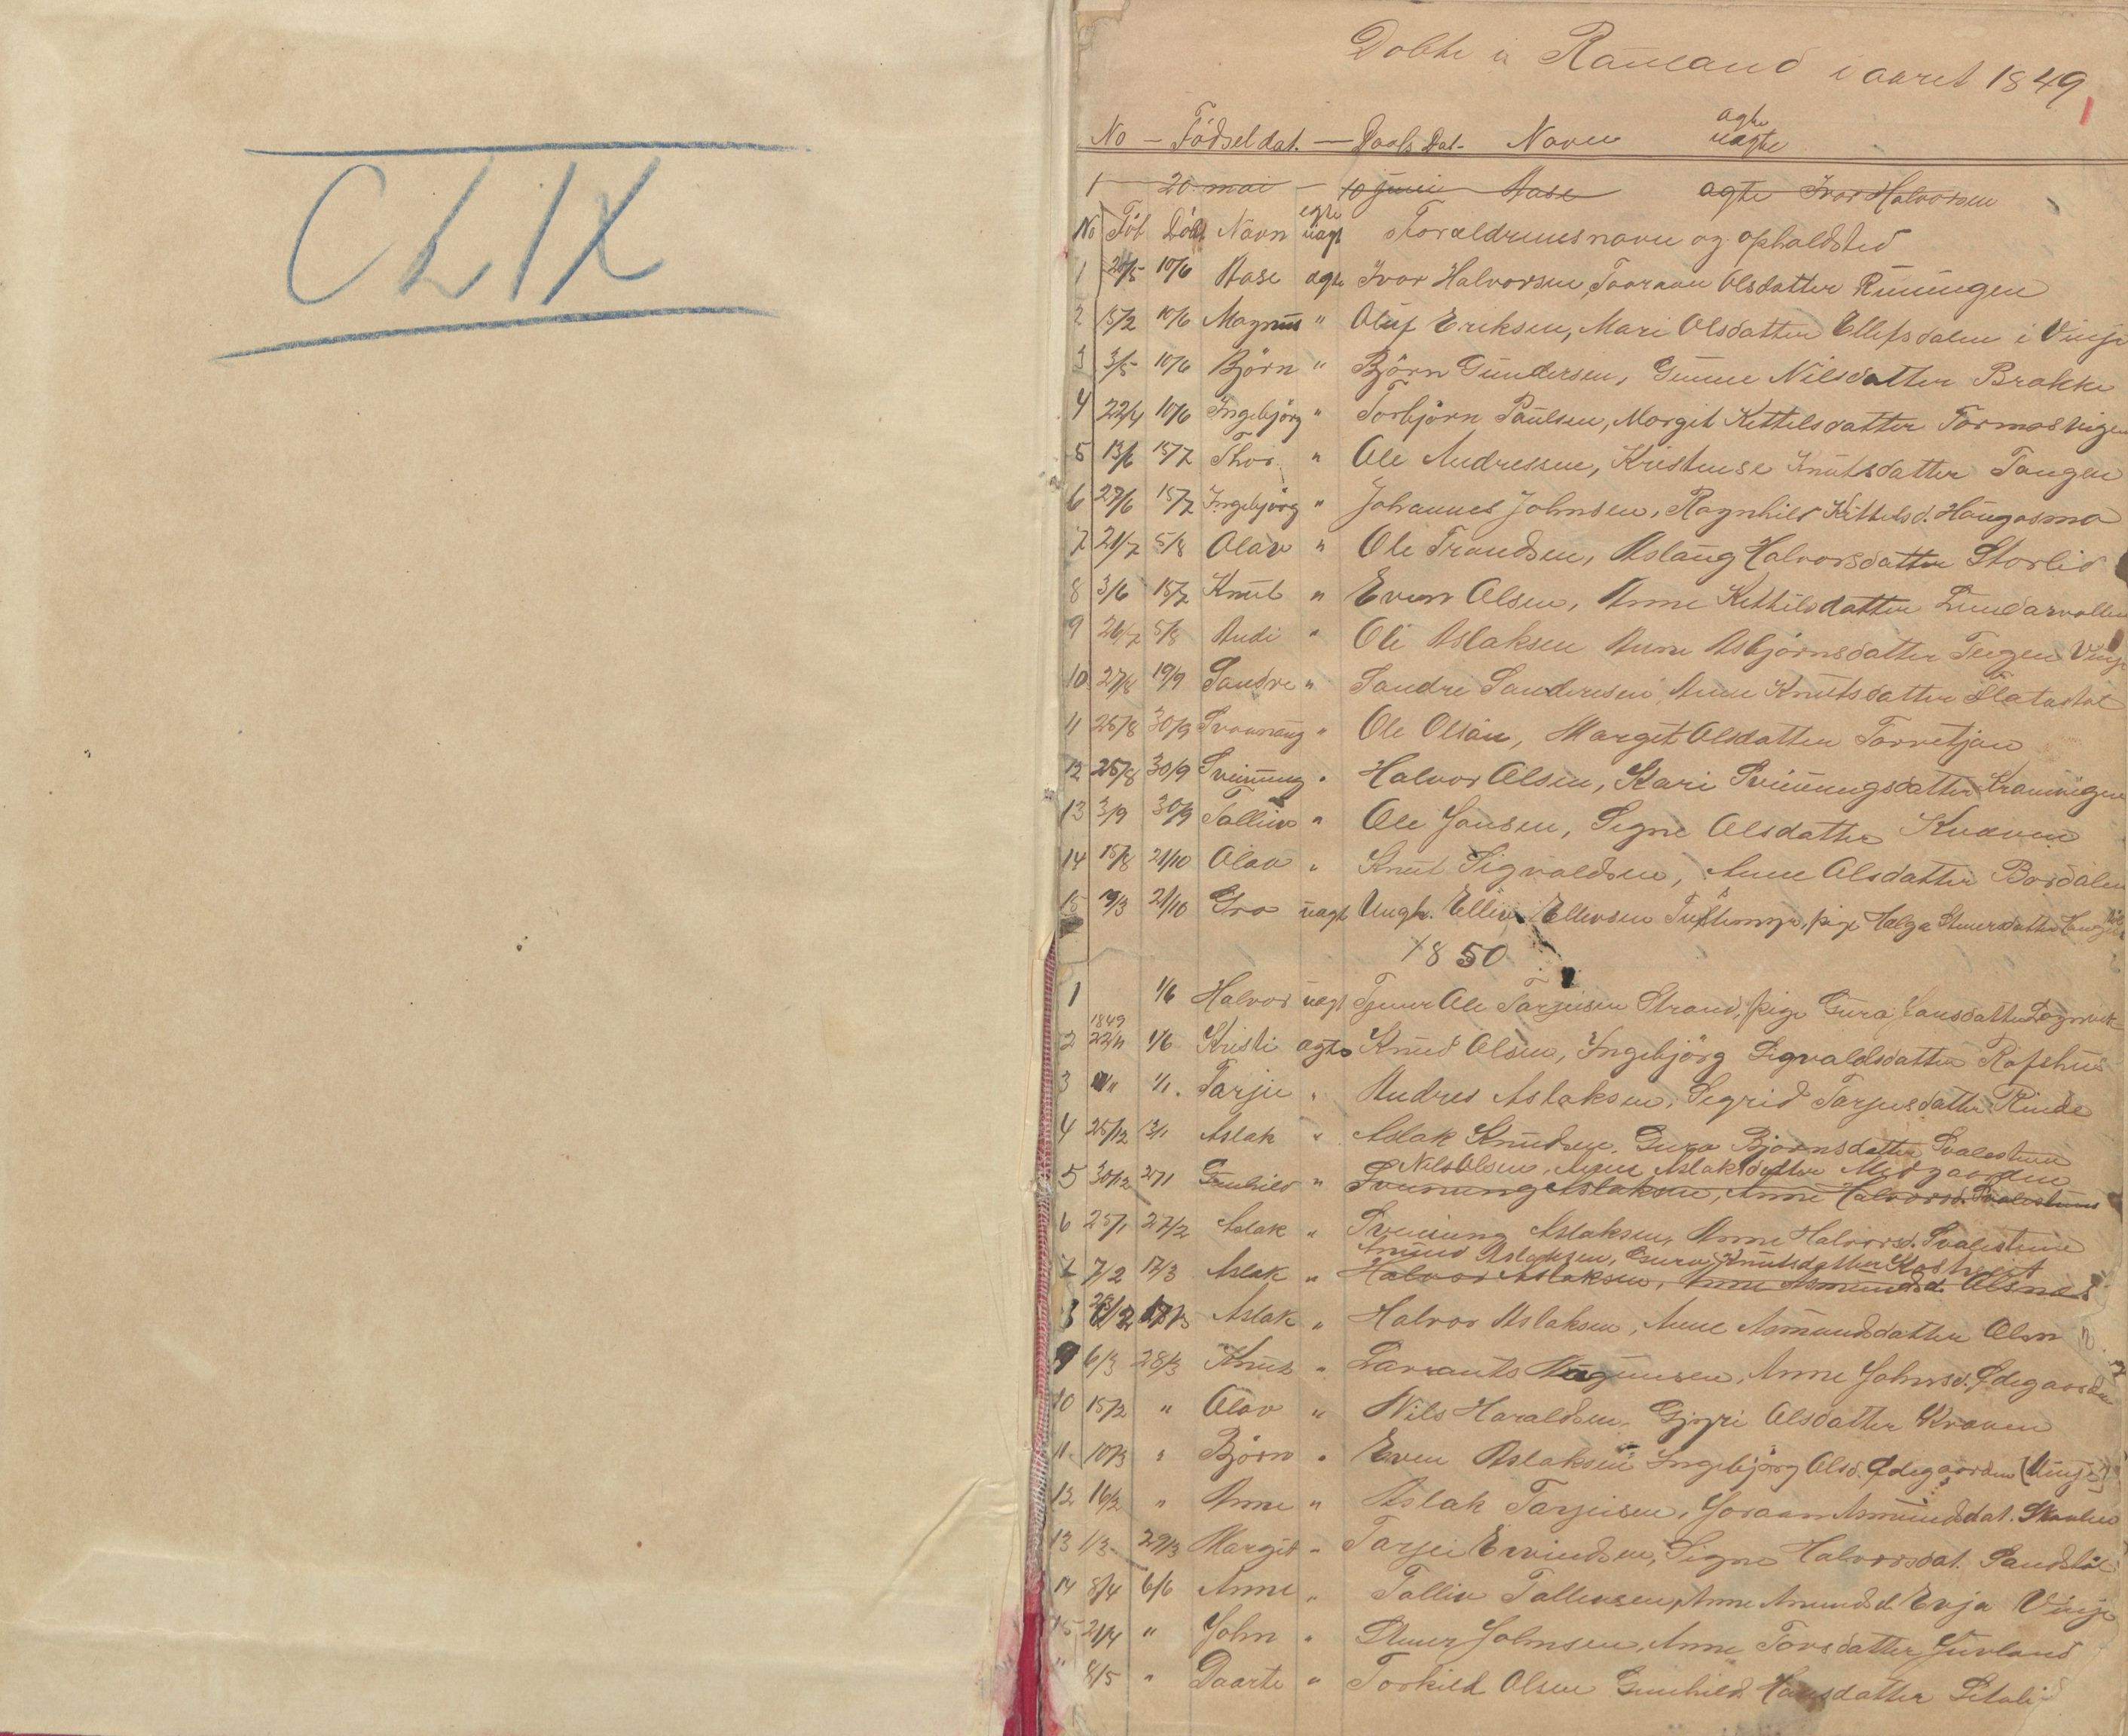 CLIX
Döbte i Rauland i aaret 1849
No - Födseldat. - Daabs Dat. Navn ægte uægte
1 20 mai - 10 juni Aase ægte Ivar Halvorsen
No Föd Döbt Navn egte uægt Foraldrenes navn og opholdsted
1 20/5 10/6 Aase ægte Ivar Halvorsen, Taaraan Olsdatter Runingen
2 15/2 10/6 Magnus " Oluf Eriksen, Mari Olsdatter Ellefsdalen i Vinje
3 3/5 10/6 Björn " Björn Gundersen, Gunne Nilsdatter Brakke
4 22/4 10/6 Ingebjörg " Torbjörn Paulsen, Margit Kettelsdatter
5 13/6 15/7 Thor " Ole Andressen, Knutsdatter Tangen
6 27/6 15/7 Ingebjörg " Johannes Johnsen, Ragnhild Kittelsd. Haugasmo
7 21/7 5/8 Olav " Ole Trondsen, Aslaug Halvorsdatter Storlid
8 3/6 15/7 Knut " Even Olsen, Anne Kittilsdatter
9 20/7 5/8 Andi " Ole Aslaksen Anne Asbjörnsdatter Teigen Vinje
10 27/8 19/9 Sandre " Sandre Sandersen, Anne Knutsdatter Flatastöl
11 25/8 30/9 Svaunaug " Ole Olsen, Margit Olsdatter Torvetjön
12 25/8 30/9 Sveinung " Halvor Olsen, Kari Sveinungsdatter
13 3/9 30/9 Talleiv " Ole Jansen, Signe Olsdatter Kvaven
14 15/8 21/10 Olav " Knut Sigvaldsen, Anne Olsdatter Bordalen
15 19/3 21/10 Gro uægt Ungk. Elliv Ellevsen pige Helga
1850
1 1/6 Halvor uægt Tjener Ole Tarjeisen Strand, pige Gura Hansdatter
2 1849 22/11 1/6 Kristi ægte Knud Olsen, Ingebjörg Sigvaldsdatter Rofshus
3 1/1. Tarjei " Andres Aslaksen, Sigrid Tarjeisdatter Rinde
4 25/12 13/1 Aslak " Aslak Knudsen, Gura Björnsdatter Svalestuen
Nils Olsen, Anne Aslaksdatter Midgaarden
5 30/12 27/1 Gunhild " Sveinung Aslaksen, Anne Halvorsd. Svalestuen
6 25/1 27/2 Aslak " Sveinung Aslaksen, Anne Halvorsd. Svalestuen
Amund Aslaksen, Gura Knutsdatter Kostveit
7 7/2 17/3 Aslak " Halvor Aslaksen, Anne Asmundsd. Olsnes
8 17/3 Aslak " Halvor Aslaksen, Anne Asmundsdatter Olsn
9 6/3 28/3 Knut " Lavrants Magnusen, Anne Johnsd. Ödegaarden
10 15/2 " Olav " Nils Haraldsen, Gjyri Olsdatter Kraven
11 10/3 " Björn " Even Aslaksen Ingebjörg Olsd. Ödegaarden (Vinje)
12 16/2 " Anne " Aslak Tarjeisen, Joraan Asmundsdat.
13 1/3 29/3 Margit " Tarjei Eivindsen, Signe Halvorsdat. Sandstöl
14 8/4 6/6 Anne " Talleiv Tallevsen, Anne Amundsd. Evja Vinje
15 21/4 " John " Stener Johnsen, Anne Torsdatter Juvland
" 8/5 " Daarte " Torkild Olsen Gunhild Hansdatter